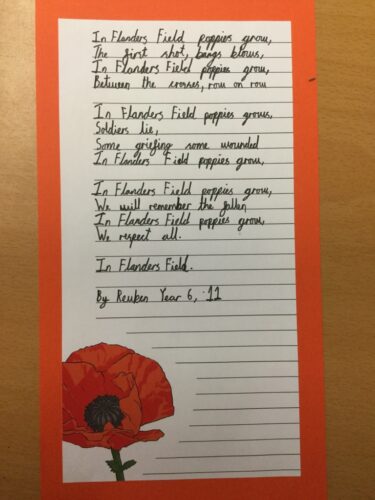 In Flanders Field poppies grow,
The first shot, bangs blows,
In Flanders Field poppies grow,
Between the crosses, row on row
In Flanders Field poppies grows,
Soldiers lie,
Some griefing some wounded
In Flanders Field poppies grow,
In Flanders Field poppies grow,
We will remember the fallen
In Flanders Field poppies grow,
We respect all.
In Flanders Field.
By Reuben Year 6, 11